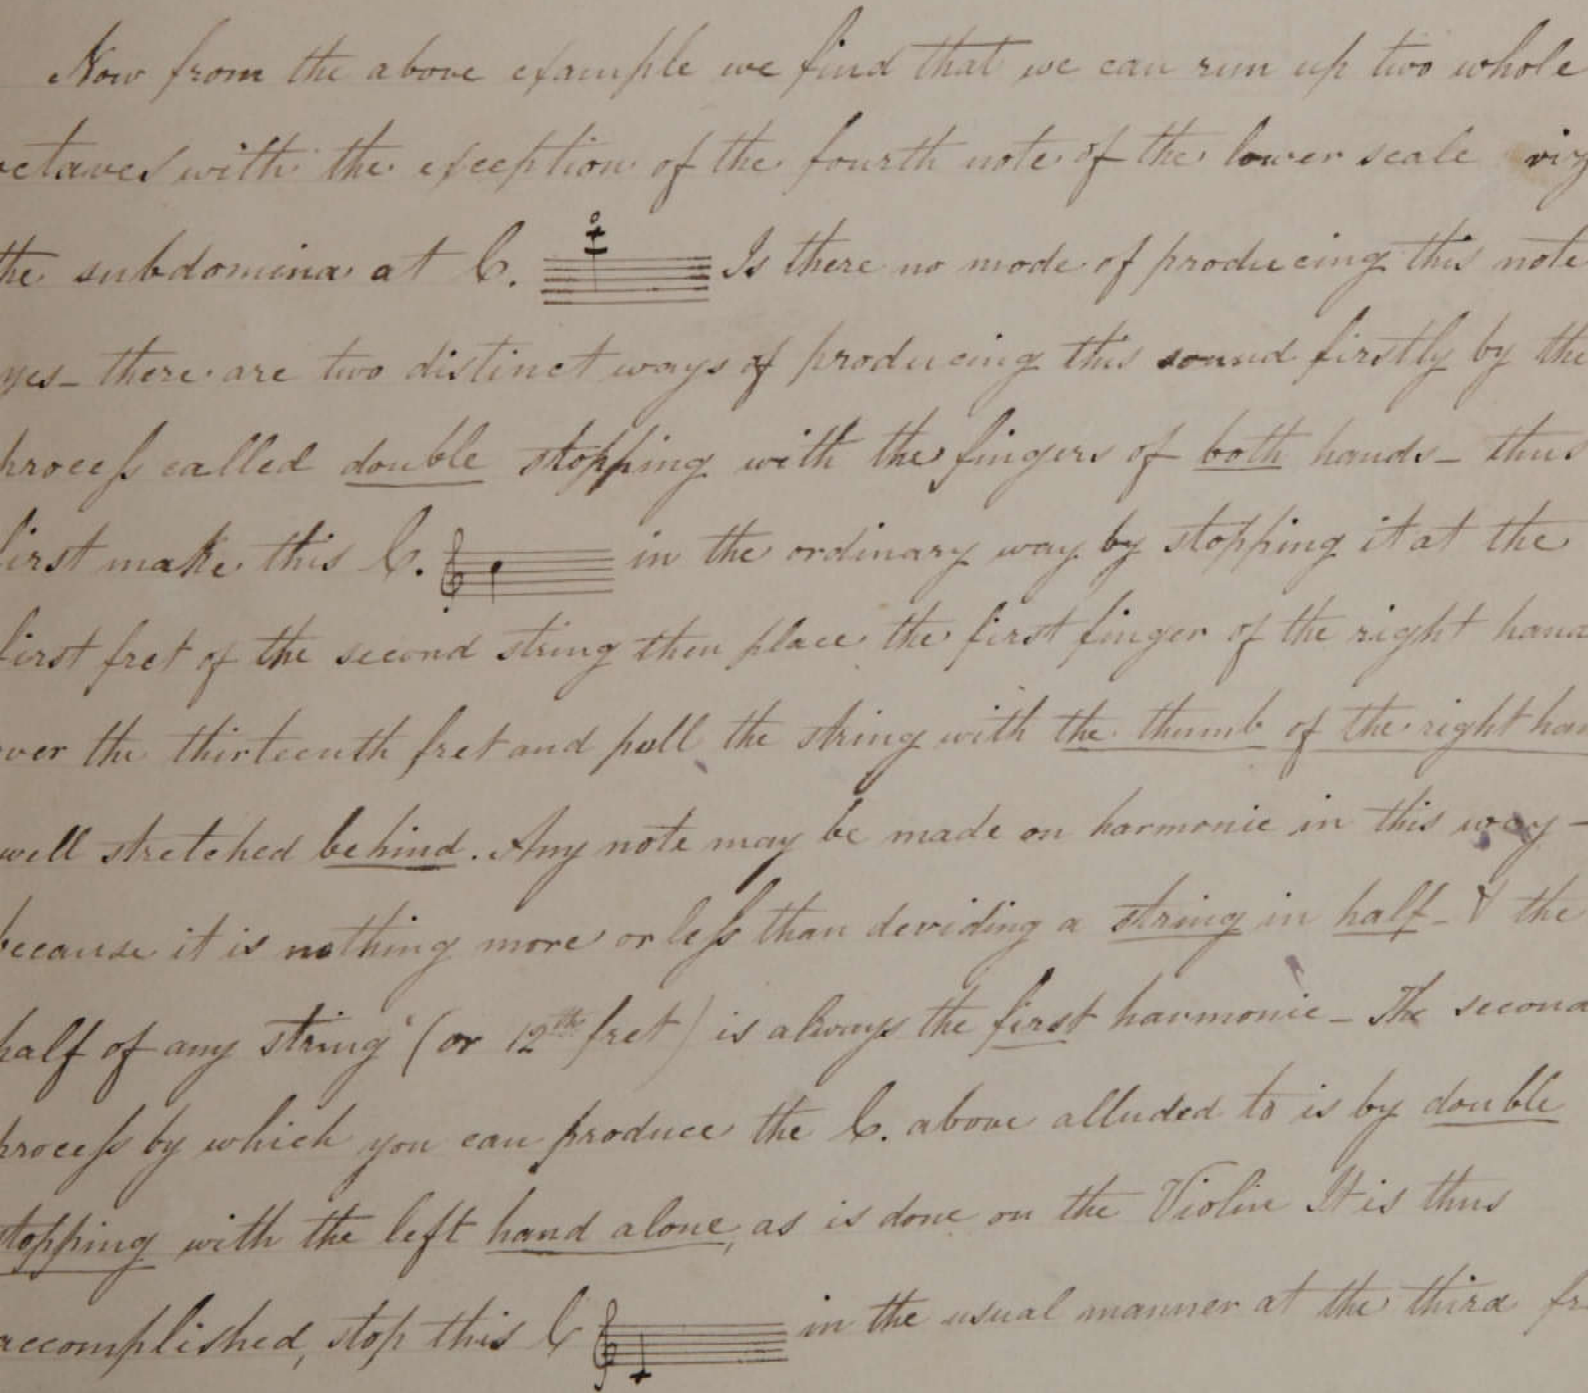 Now from the above example we find that we can run up two whole
octaves with the exception of the fourth note of the lower scale viz
the subdomina at C. Is there no mode of producing this note
yes_ there are two distinct ways of producing this sound firstly by the
process called double stopping with the fingers of both hands_ thus
first make this C. in the ordinary way by stopping it at the
first fret of the second string then place the first finger of the right hand
over the thirteenth fret and pull the string with the thumb of the right han
well stretched behind. Any note may be made an harmonic in this way _
because it is nothing more or less than deviding a string in half_ & the
half of any string (or 12th fret) is always the first harmonic_ The second
process by which you can produce the C. above alluded to is by double
stopping with the left hand alone, as is done on the Violin It is thus
accomplished, stop this C in the usual manner at the third fr